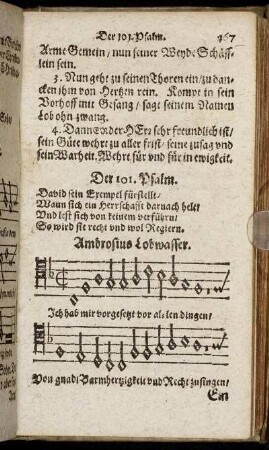 Der 101. Psalm. 167
Arme Gemein/ nun seiner Weyde Schäff-
lein sein.
3. Nun geht zu seinen Thoren ein/ zu dan-
cken ihm von Hertzen rein. Kompt in sein
Vorhoff mit Gesang/ sagt seinem Namen
Lob ohn zwang.
4. Dann er der HErr sehr freundlich ist/
sein Güte wehrt zu aller frist/ seine zusag vnd
sein Warheit, Wehrt für vnd für in ewigkeit.
Der 101. Psalm.
David sein Exempel fürstellt/
Wann sich ein Herrschafft darnach helt/
Vnd lest sich von keinem verführn/
So wird sie recht vnd wol Regiern.
Ambrosius Lobwasser.
Ich hab mir vorgesetzt vor allen dingen/
Von gnad/ Barmhertzigkeit vnd Recht zusingen/
Ein